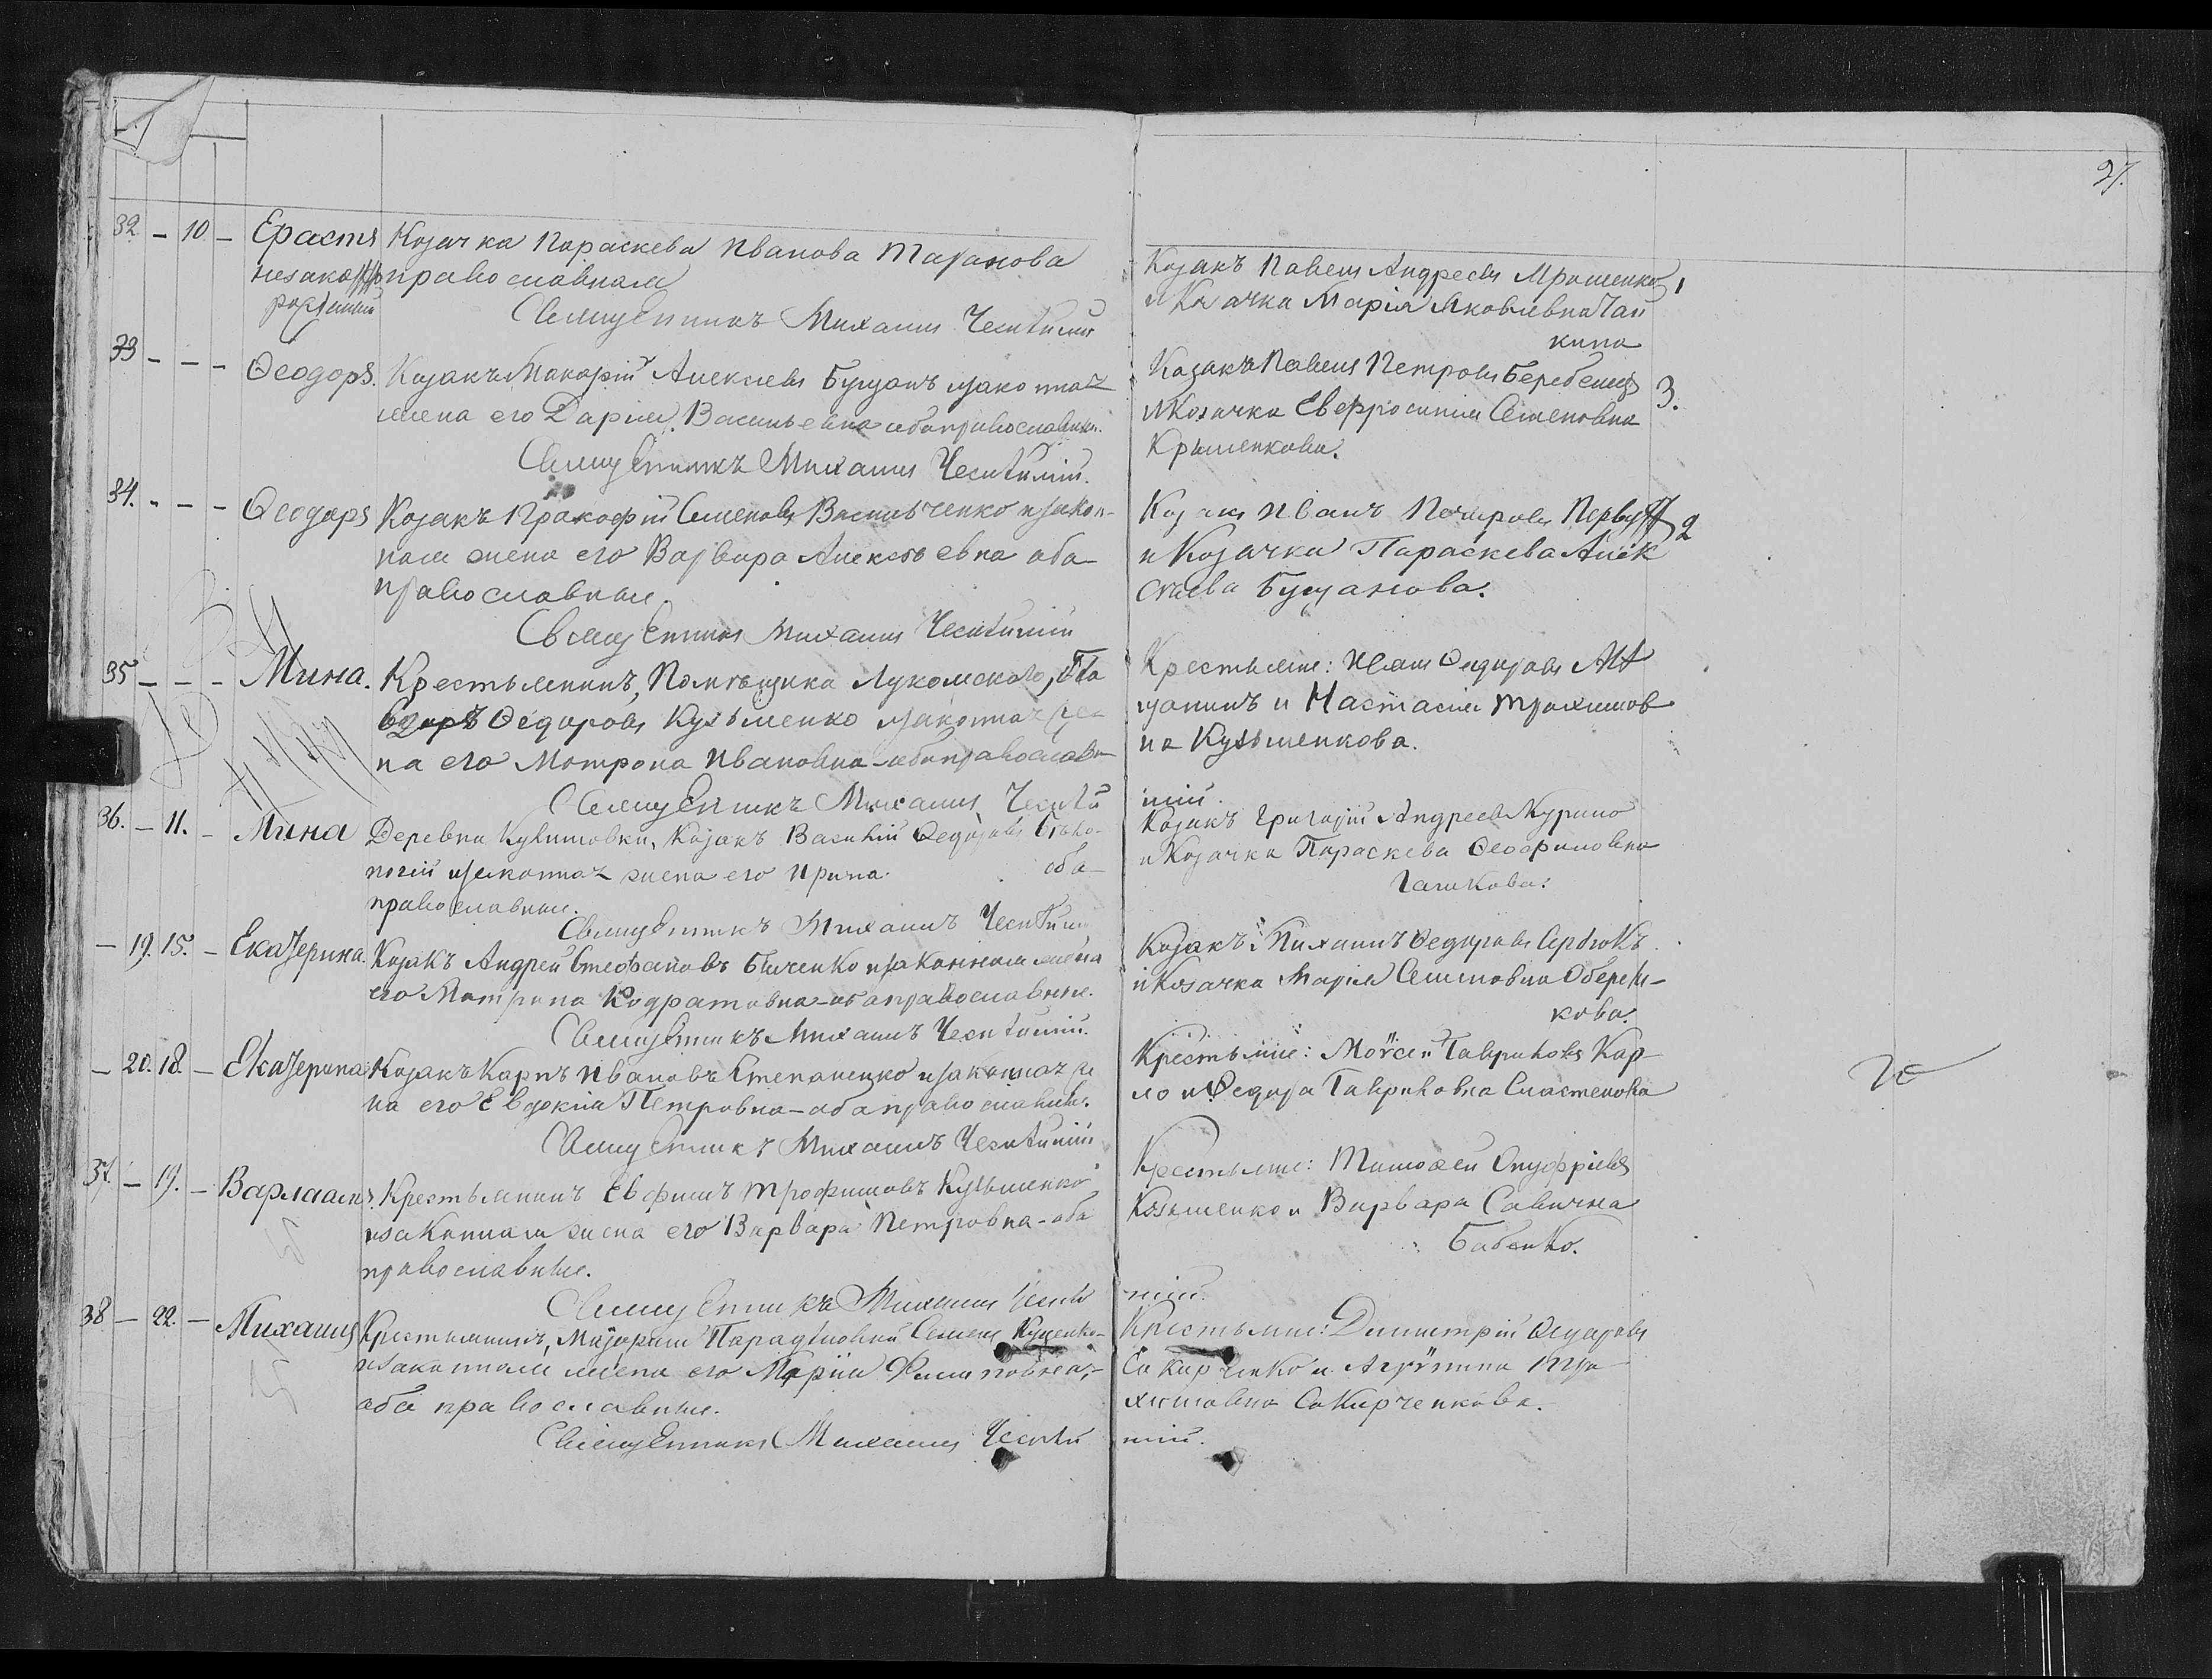 27.
32. – 10. – Ерастъ Козачка Параскева Иванова Таранова
незакон православная
рожденный
Священникъ Михаилъ
Козакъ Павелъ Андреевъ Мрошенко 1
и Козачка Марія Яковлевна Чай
кина
33 – – – Ѳеодоръ. Козакъ Макарій Алексѣевъ Бущанъ изаконная
жена его Дарія Васильевна оба православные.
Священникъ Михаилъ
Козакъ Павелъ Петровъ 3.
и Козачка Евфросинія Семеновна
Крыменкова.
34. – – – Ѳеодоръ Козакъ Прокофій Семеновъ Васильченко изакон-
ная жена его Варвара Алексѣевна оба
православные.
Священникъ Михаилъ
Козакъ Иванъ Петровъ 2
и Козачка Параскева Алек
сѣева Бущанова.
35 – – – Мина. Крестьянинъ, Помѣщика Лукомскаго,
Ѳедоровъ Кузьменко изаконная же
на его Мотрона Ивановна оба православн
Священникъ Михаилъ
Крестьяне: Иванъ Ѳедоровъ
щанинъ и Настасія Трохимов
на Кузьменкова.
36. – 11. – Мина Деревни Козакъ Василій Ѳедоровъ
изаконная жена его Ирина оба
православные.
Священникъ Михаилъ
ній.
Козакъ Григорій Андреевъ
и Козачка Параскева Ѳеофиловна
Гашкова.
– 19. 15. – Екатерина. Козакъ Андрей Стефановъ Быченко изаконная жена
его Матрона Кодратовна – оба православные.
Священникъ Михаилъ
Козакъ Михаилъ Ѳедоровъ Сердюкъ
и Козачка Марія Семеновна
кова.
– 20. 18. – Екатерина Козакъ Карпъ Ивановъ Степаненко изаконная же
на его Евдокія Петровна – оба православные.
Священникъ Михаилъ
Крестьяне: Моѵсей Гавриловъ Кар
ло и Ѳедора Гавриловна Сластенова
37. – 19. – Варлаамъ. Крестьянинъ Евфимъ Трофимовъ Кузьменко
изаконная жена его Варвара Петровна – оба
православные.
Священникъ Михаилъ
Крестьяне: Тимофей Онуфріевъ
Козьменко и Варвара Савична
Бабенко.
ній.
38 – 22. – Михаилъ Крестьянинъ, Маіорши Семенъ Куценко
изаконная жена его Марія Филиповна,-
оба православные.
Священникъ Михаилъ
Крестьяне: Димитрій Ѳедоровъ
Сакирченко и Агрипина Тро
химовна Сакирченкова.
ній.